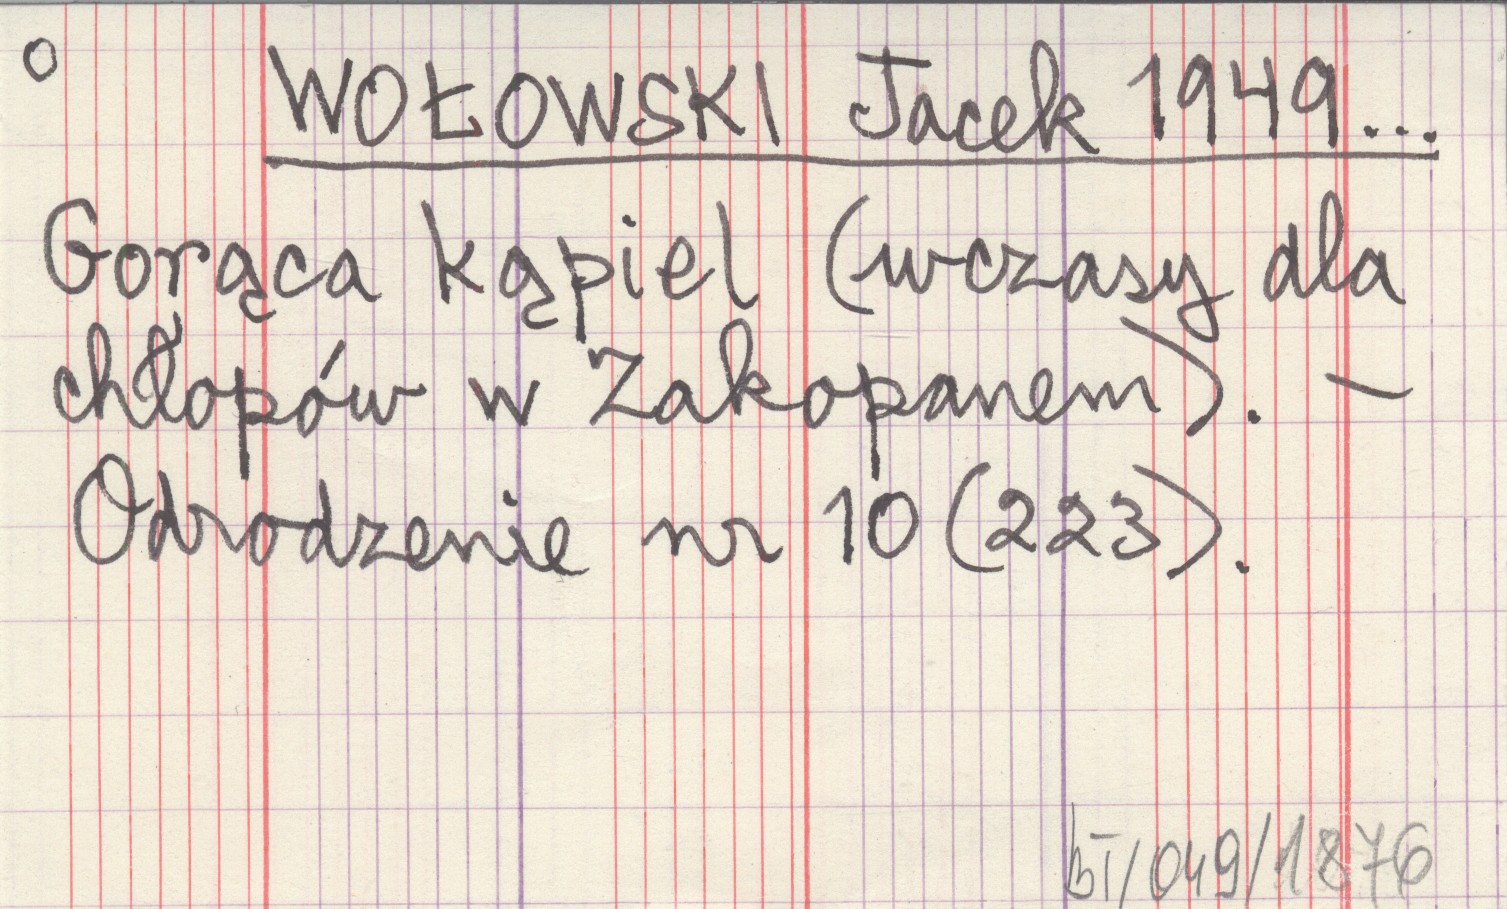 o WOŁOWSKI Jacek 1949...
Gorąca kąpiel (wczasy dla
chłopów w Zakopanem). –
Odrodzenie nr 10 (223).
bI/049/1876